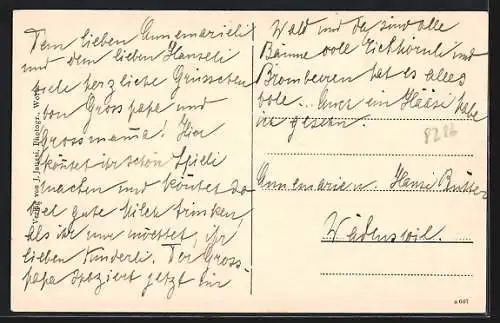 Dem lieben Annemarieli
und dem lieben Hanseli
viele herzliche Grüsschen
von Grosspapa und
Grossmama! Hier
könntet ihr schön Spieli
machen und könntet da-
bei gute Milch trinken,
als ihr nur möchtet, ihr
lieben Kinderli. Der Gross-
papa spaziert jetzt im
Wald und da sind alle
Bäume voll Eichhörnli und
Brombeeren hat es alles
volle... Auch ein Hääsi habe
ich gesehn.
8286
Annemarie u. Hansi
Wädenswil.
Verlag von J. Jaeggi, Photogr.,
a 667